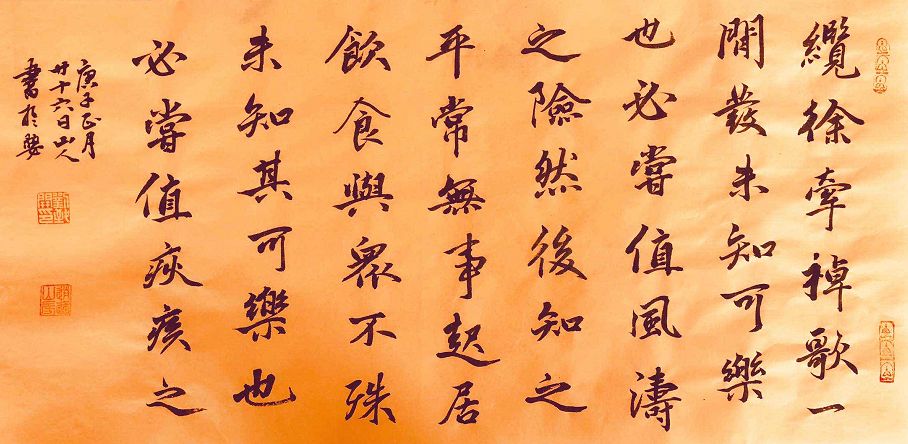 纜徐牽棹歌一
閒發未知可樂
也必嘗值風濤
之險然後知之
平常無事起居
飲食與眾不殊
未知其可樂也
必嘗值疢疾之
庚子正月
廿十六日山人
書於婺